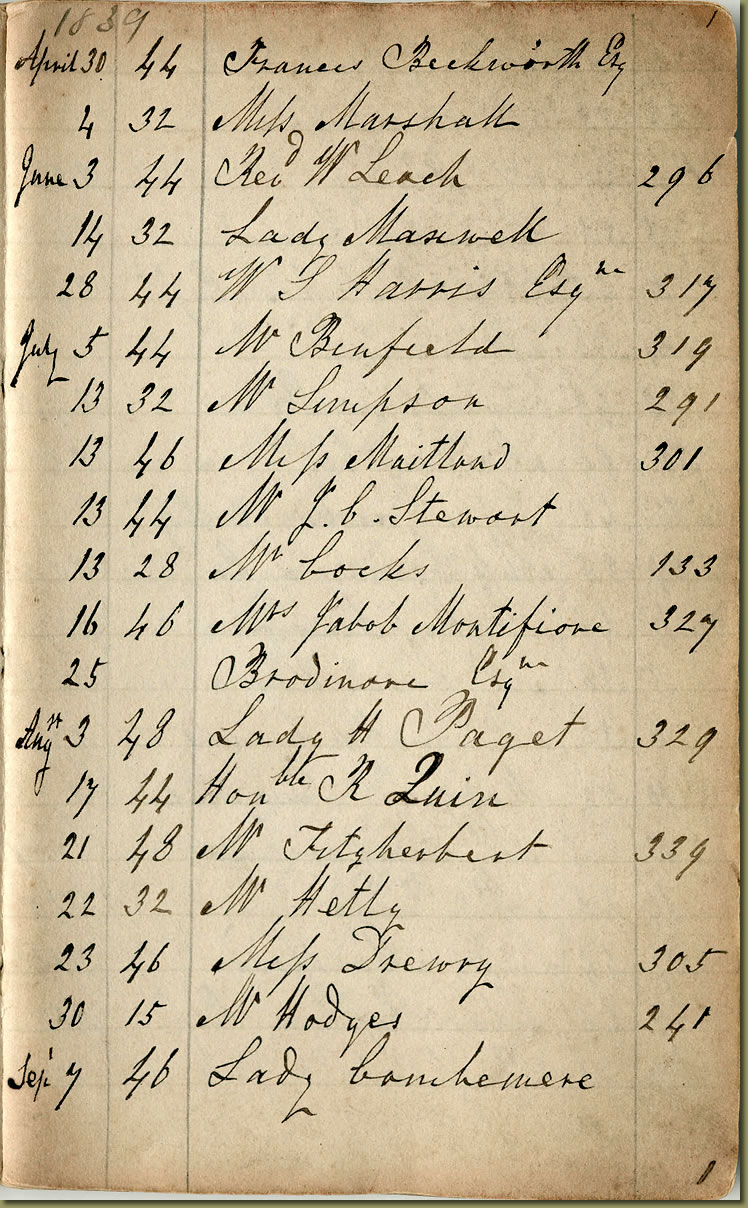 1839 1
April 30 44 Francis Beckworth Esq
4 32 Miss Marshall
June 3 44 Revd W Leach 296
14 32 Lady Maxwell
28 44 W S Harris Esqre 317
July 5 44 Mr Binfield 319
13 32 Mr Simpson 291
13 46 Miss Maitland 301
13 44 Mr J. C. Stewart
13 28 Mr Cocks 133
16 46 Mrs Jabob Montifiore 327
25 Brodinore Esqre
Augst 3 48 Lady H Paget 329
17 44 Honble R Quin
21 48 Mr Fitzherbert 339
22 32 Mr Hetly
23 46 Miss Drewry 305
30 15 Mr Hodges 241
Sep 7 46 Lady Combemere